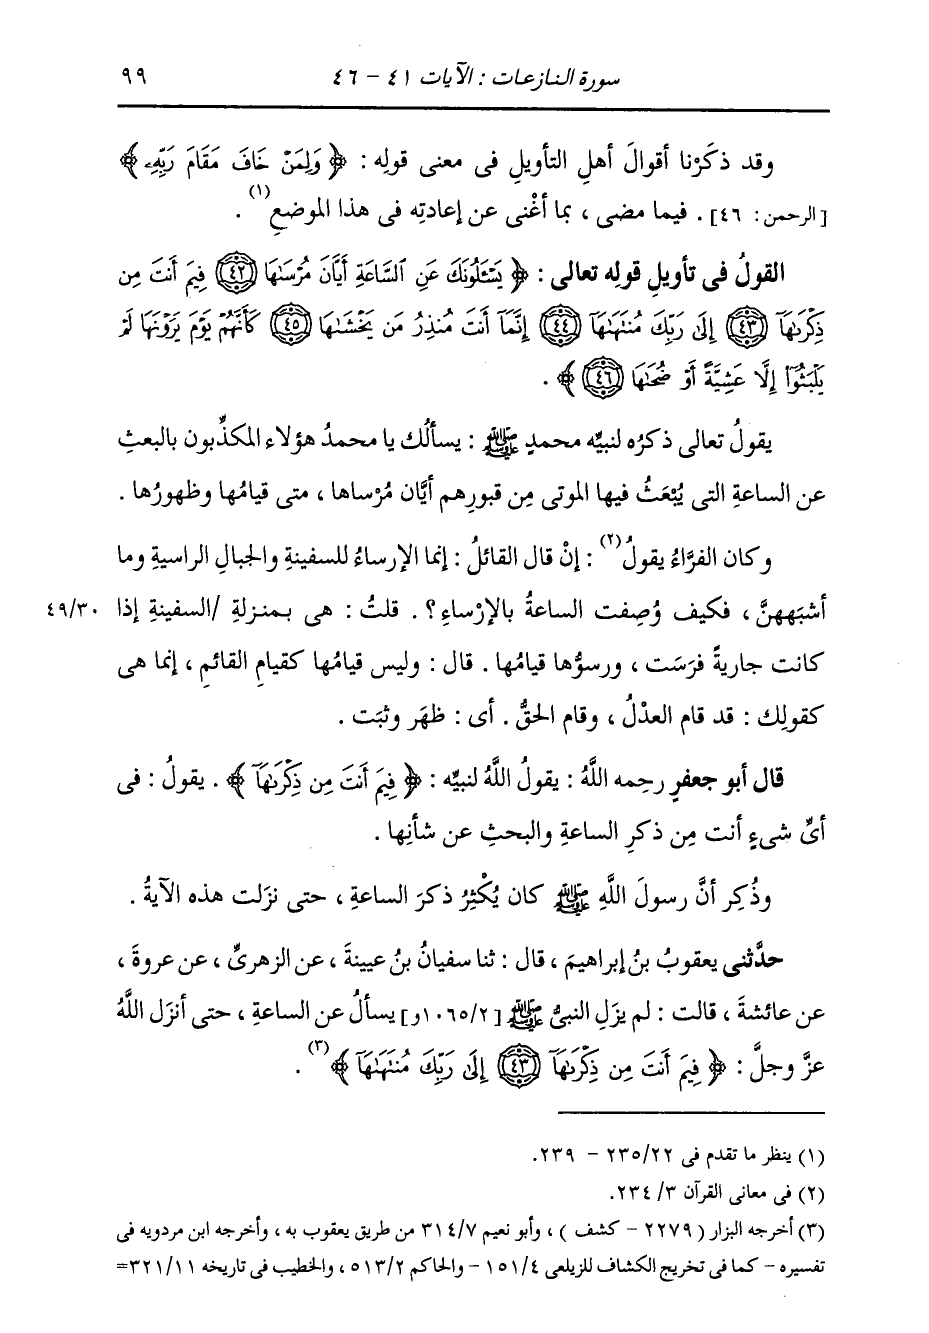 سورة النازعات : الآيات ٤١ - ٤٦ ٩٩
وقد ذكَرْنا أقوالَ أهلِ التأويلِ فى معنى قولِه : ﴿ وَلِمَنْ خَافَ مَقَامَ رَبِّهِۦ ﴾
[الرحمن: ٤٦] . فيما مضى ، بما أغْنى عن إعادتِه فى هذا الموضعِ(١) .
القولُ فى تأويلِ قولِه تعالى : ﴿ يَسْـَٔلُونَكَ عَنِ ٱلسَّاعَةِ أَيَّانَ مُرْسَىٰهَا (٤٢) فِيمَ أَنتَ مِن
ذِكْرَىٰهَآ (٤٣) إِلَىٰ رَبِّكَ مُنتَهَىٰهَآ (٤٤) إِنَّمَآ أَنتَ مُنذِرُ مَن يَخْشَىٰهَا (٤٥) كَأَنَّهُمْ يَوْمَ يَرَوْنَهَا لَمْ
يَلْبَثُوٓا۟ إِلَّا عَشِيَّةً أَوْ ضُحَىٰهَا (٤٦) ﴾ .
يقولُ تعالى ذكرُه لنبيِّه محمدٍ ﷺ : يسألُك يا محمدُ هؤلاء المكذِّبون بالبعثِ
عن الساعةِ التى يُبْعَثُ فيها الموتى مِن قبورِهم أيَّان مُرْساها ، متى قيامُها وظهورُها .
وكان الفرَّاءُ يقولُ(٢) : إنْ قال القائلُ : إنما الإرساءُ للسفينةِ والجبالِ الراسيةِ وما
أشبَههنَّ ، فكيف وُصِفت الساعةُ بالإرْساءِ؟ . قلتُ : هى بمنزلةِ /السفينةِ إذا ٤٩/٣٠
كانت جاريةً فرَسَت ، ورسوُّها قيامُها . قال : وليس قيامُها كقيامِ القائمِ ، إنما هى
كقولِك : قد قام العدْلُ ، وقام الحقُّ . أى : ظهَر وثبَت .
قال أبو جعفرٍ رحِمه اللَّهُ : يقولُ اللَّهُ لنبيِّه : ﴿ فِيمَ أَنتَ مِن ذِكْرَىٰهَآ ﴾ . يقولُ : فى
أىِّ شىءٍ أنت مِن ذكرِ الساعةِ والبحثِ عن شأنِها .
وذُكِر أنَّ رسولَ اللَّهِ ﷺ كان يُكْثِرُ ذكرَ الساعةِ ، حتى نزَلت هذه الآيةُ .
حدَّثنى يعقوبُ بنُ إبراهيمَ ، قال : ثنا سفيانُ بنُ عيينةَ ، عن الزهرىِّ ، عن عروةَ ،
عن عائشةَ ، قالت : لم يزَلِ النبىُّ ﷺ [١٠٦٥/٢و] يسألُ عن الساعةِ ، حتى أنزَل اللَّهُ
عزَّ وجلَّ : ﴿ فِيمَ أَنتَ مِن ذِكْرَىٰهَآ (٤٣) إِلَىٰ رَبِّكَ مُنتَهَىٰهَآ ﴾(٣) .
(١) ينظر ما تقدم فى ٢٣٥/٢٢ - ٢٣٩.
(٢) فى معانى القرآن ٣/ ٢٣٤.
(٣) أخرجه البزار ( ٢٢٧٩ - كشف ) ، وأبو نعيم ٣١٤/٧ من طريق يعقوب به ، وأخرجه ابن مردويه فى
تفسيره - كما فى تخريج الكشاف للزيلعى ١٥١/٤ - والحاكم ٥١٣/٢ ، والخطيب فى تاريخه ٣٢١/١١=